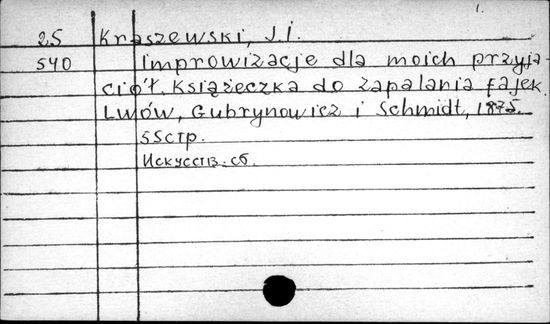 1.
25 Kraszewski, J.I.
540 Improwizacje dla moich przyja-
ciół. Książeczka do zapalania fajek.
Lwów, Gubrynowicz i Schmidt, 1875.
55стр.
Искусств. сб.